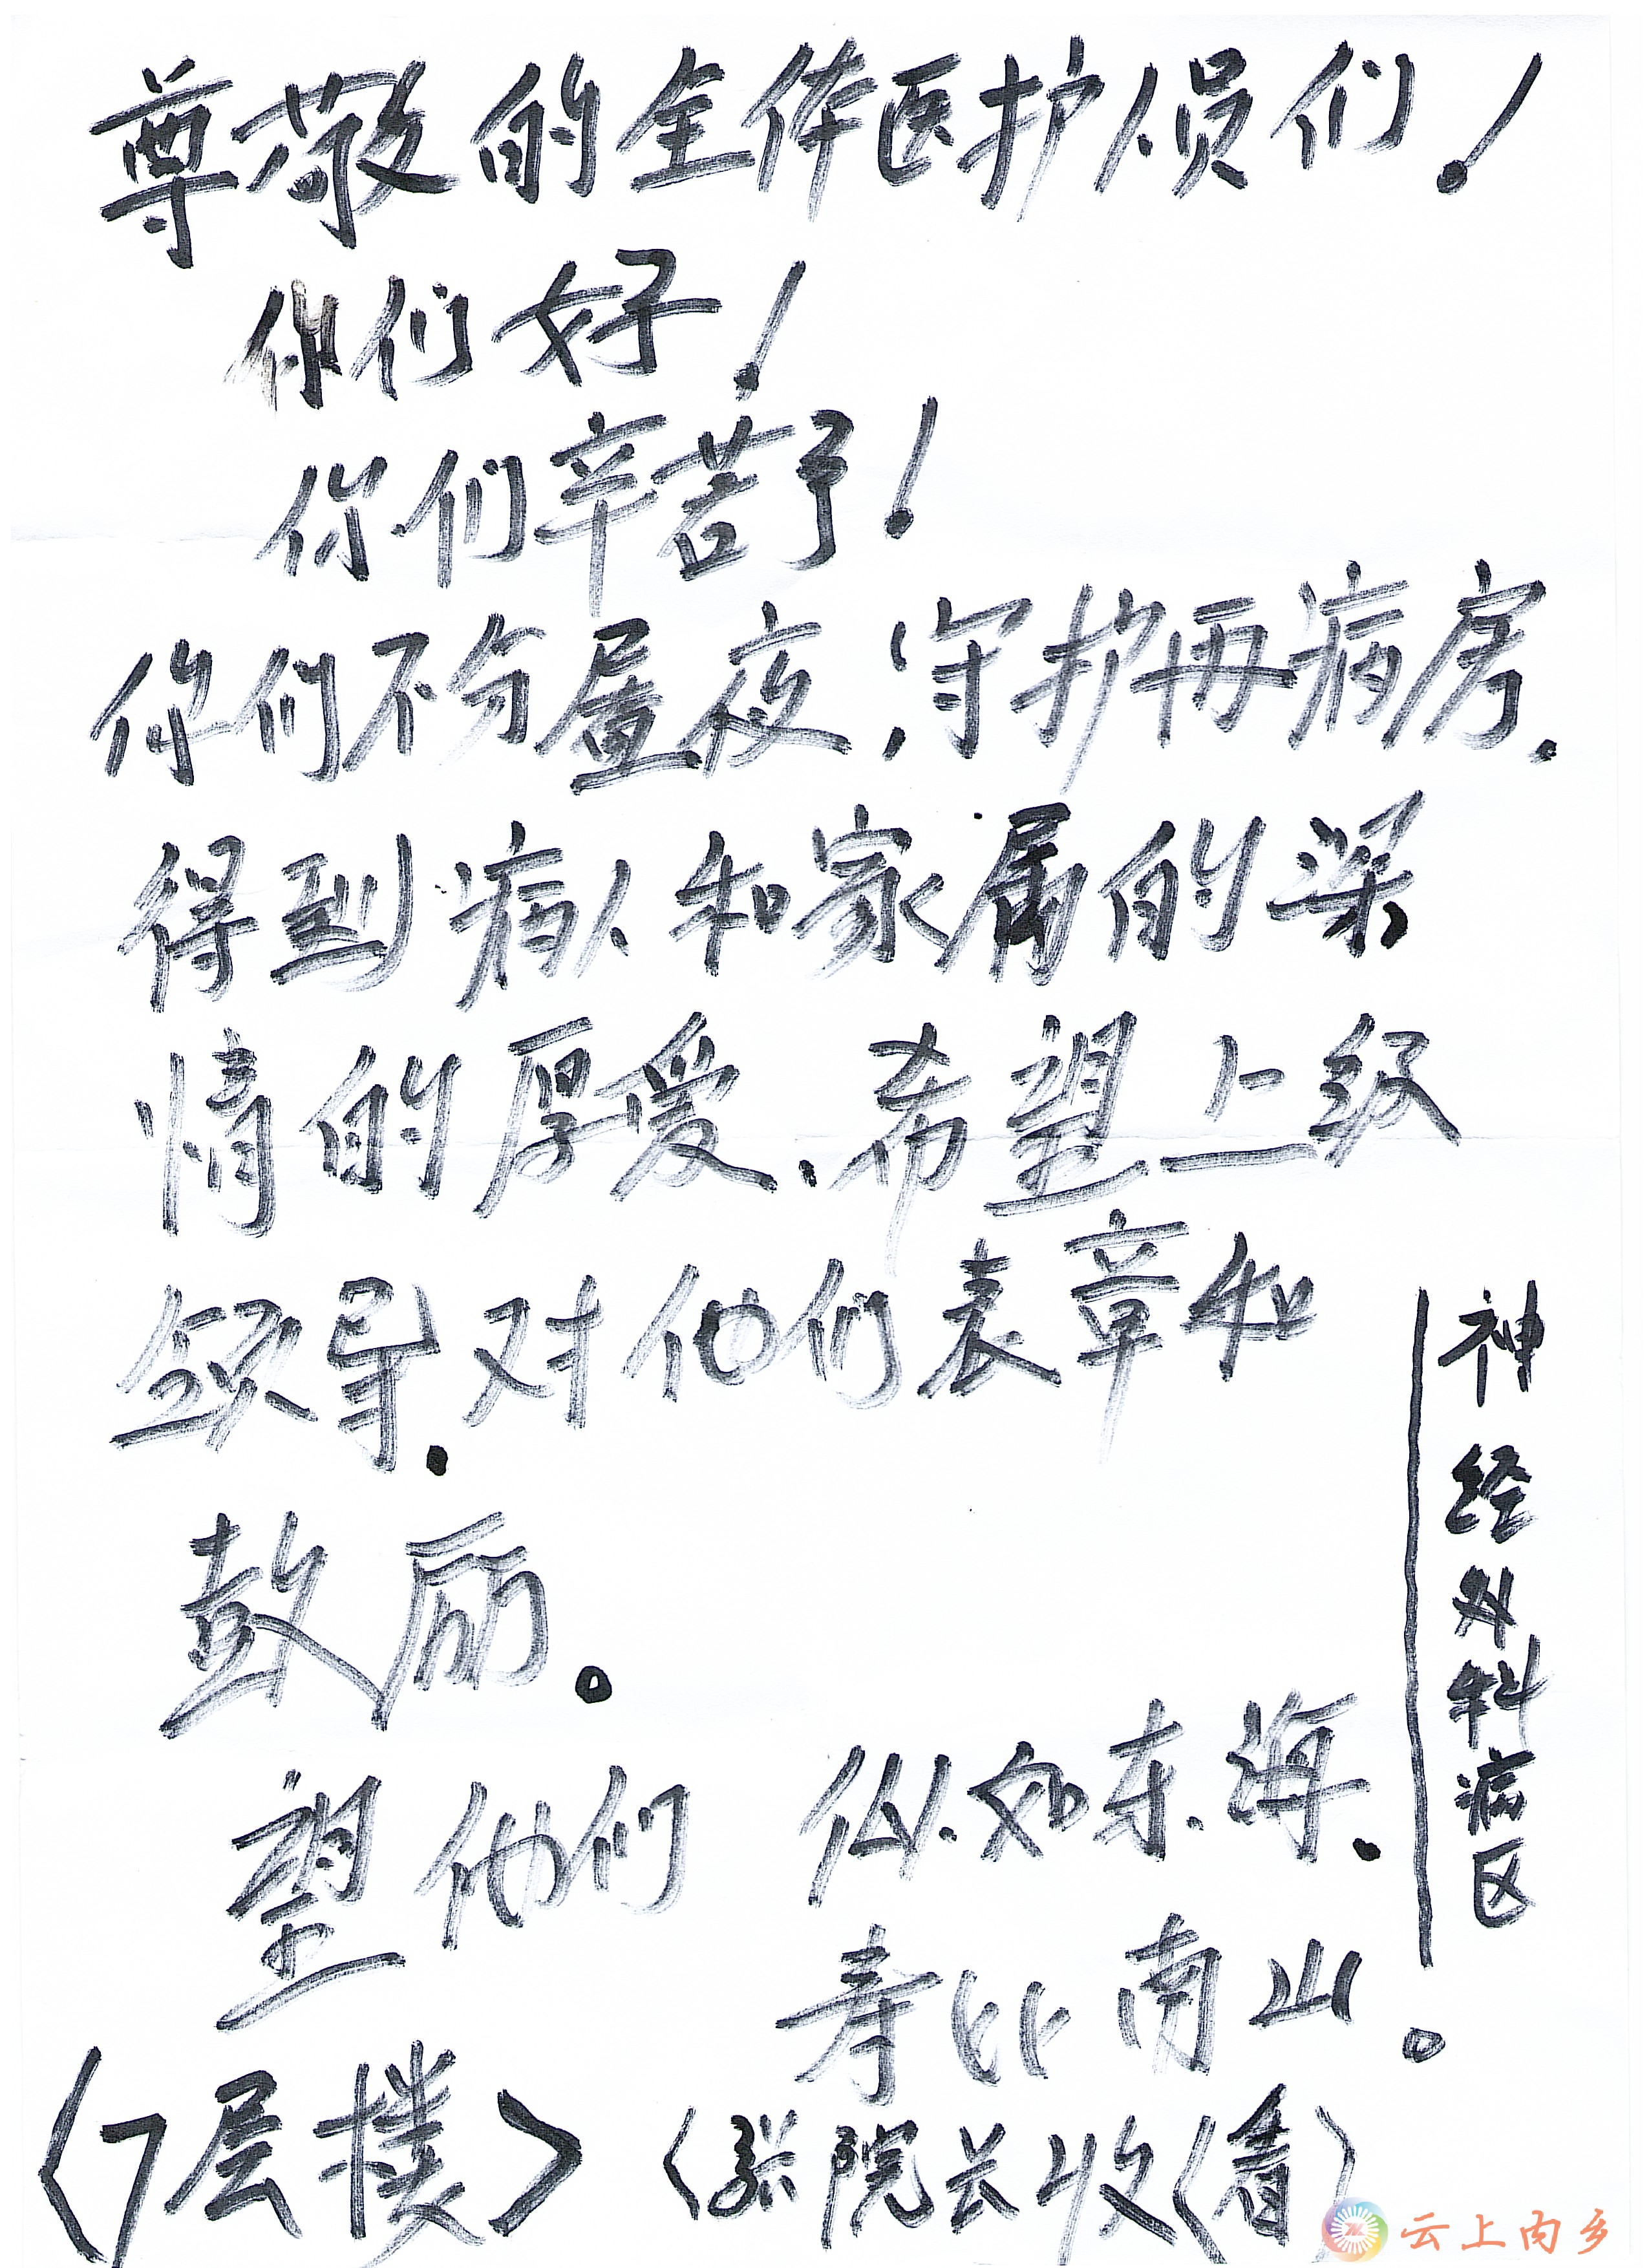 尊敬的全体医护人员们！
你们好！
你们辛苦了！
你们不分昼夜，守护再病房.
得到病人和家属的深
情的厚爱.希望上级
领导.对他们表章和
鼓励。
望他们 似如东海.
寿比南山。
〈7层楼〉 〈张院长收〈看〉
神经外科病区
云上内乡